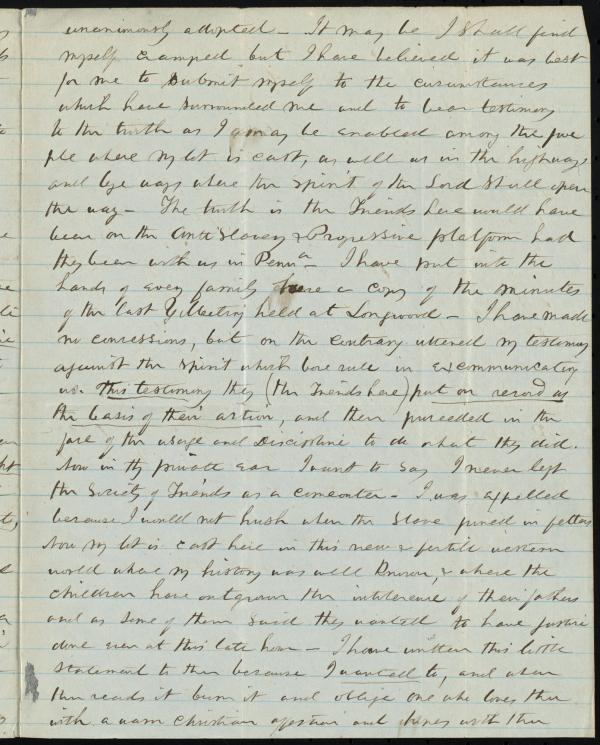 unanimously adopted – It may be I shall find
myself cramped but I have believed it was best
for me to submit myself to the circumstances
which have surrounded me and to bear testimony
to the truth as I may be enabled among the peo
ple where my lot is cast, as well as in the highways
and bye ways where the spirit of the Lord shall open
the way – The truth is the Friends here would have
been on the Anti Slavery & Progressive platform had
they been with us in Penna – I have put into the
hands of every family here a copy of the minutes
of the last Y Meeting held at Longwood – I have made
no concessions, but on the contrary uttered my testimony
against the spirit which bore rule in excommunicating
us. This testimony they (the Friends here) put on record as
the basis of their action, and then proceeded in the
face of the usage and Discipline to do what they did.
Now in thy private ear I want to say I never left
the Society of Friends as a comeouter – I was expelled
because I would not hush when the slave pined in fetters
Now my lot is cast here in this new & fertile western
world where my history was well known, & where the
children have outgrown the intolerence of their fathers
and as some of them said they wanted to have justice
done even at this late hour – I have written this little
statement to thee because I wanted to, and when
thee reads it burn it and oblige one who loves thee
with a warm christian affection and with thee